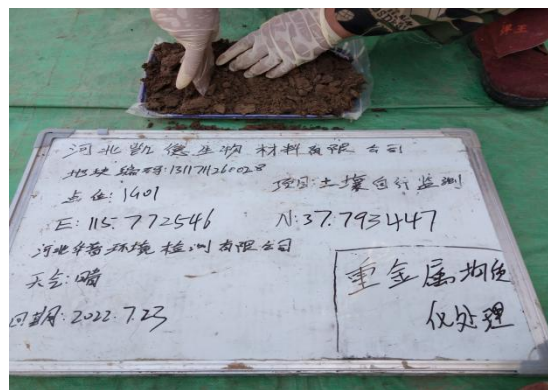 河北凯德生物材料有限公司
地块编码:1311711260028
点位:1G01
项目:土壤自行监测
E:115.772546
N:37.793447
河北华菁环境检测有限公司
天气:晴
日期:2022.7.23
重金属均质
化处理